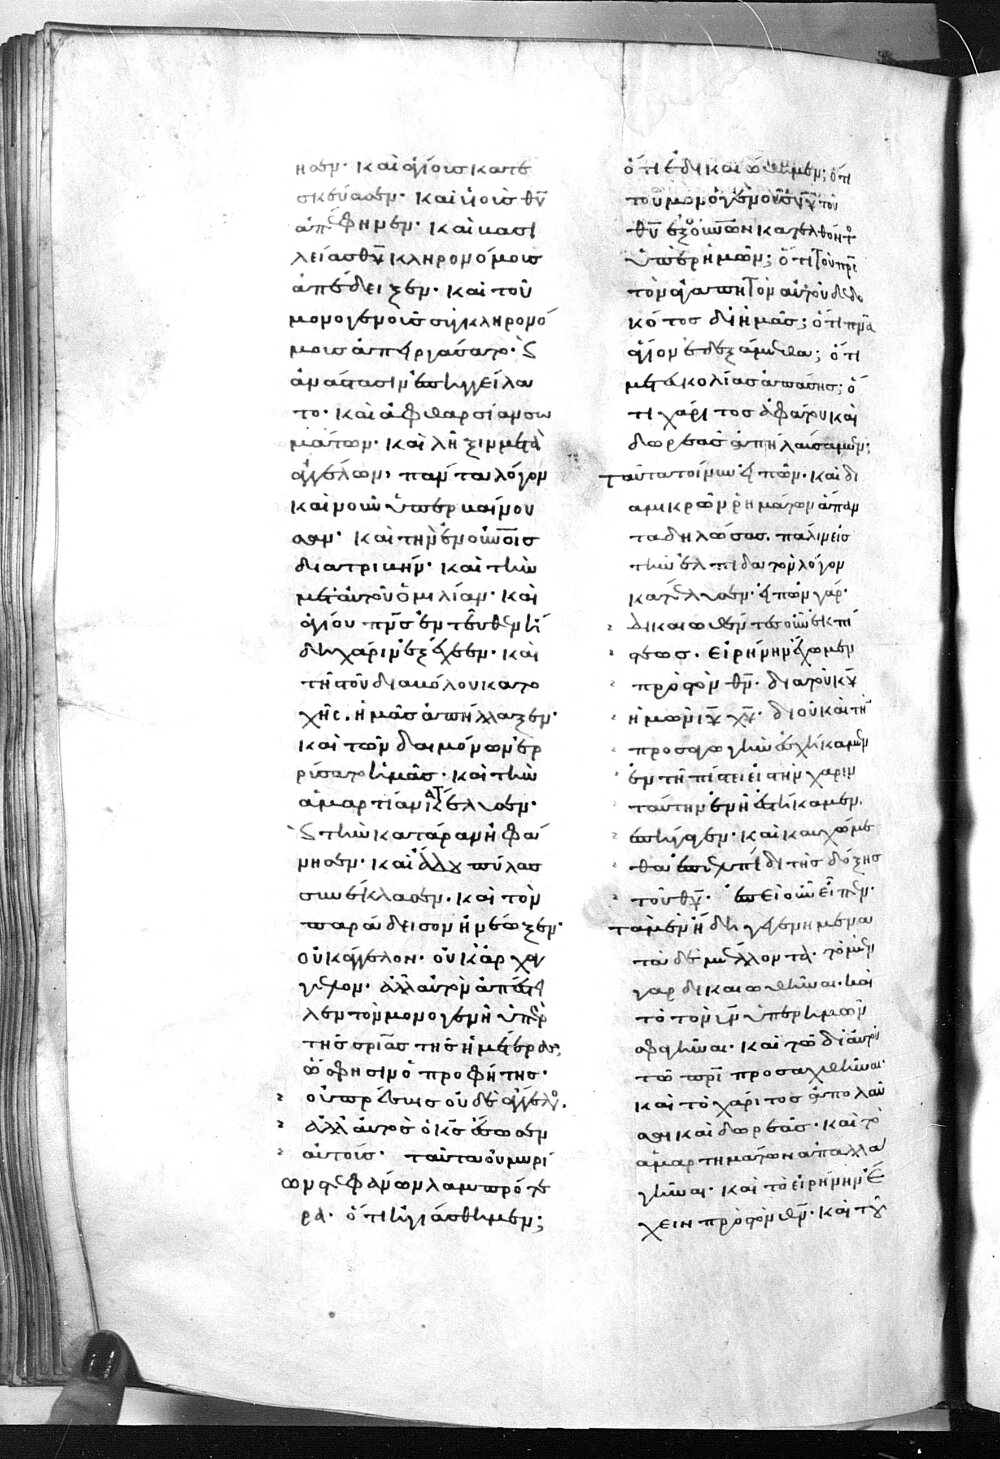 ησεν· καὶ ἁγίους κατε
σκεύασεν· καὶ υἱοὺς θῦ
ἀπέφηνεν· καὶ βασι
λείας θῦ κληρονόμους
ἀπέδειξεν· καὶ τοῦ
μονογενοῦς συγκληρονό
μους ἀπειργάσατο· καὶ
ἀνάστασιν ἐπηγγείλα
το· καὶ ἀφθαρσίαν σω
μάτων· καὶ λῆξιν μετὰ
ἀγγέλων, πάντα λόγον
καὶ νοῦν ὑπερβαίνου
σαν· καὶ τὴν ἐν οὐνοῖς
διατριβήν· καὶ τὴν
μετ' αὐτοῦ ὁμιλίαν· καὶ
ἁγίου πνς ἐντεῦθεν ἤ
δη χάριν ἐξέχεεν· καὶ
τῆς τοῦ διαβόλου κατο
χῆς, ἡμᾶς ἀπήλλαξεν·
καὶ τῶν δαιμόνων ἐρ
ρύσατο ἡμᾶς· καὶ τὴν
ἁμαρτίαν κατέλυσεν·
καὶ τὴν κατάραν ἠφά
νησεν· καὶ ἅδου πύλας
συνέκλασεν· καὶ τὸν
παράδεισον ἠνέωξεν·
οὐκ ἄγγελον· οὐκ ἀρχάγ
γελον· ἀλλ' αὐτὸν ἀπέστει
λεν τὸν μονογενῆ ὑπὲρ
τῆς σρίας τῆς ἡμετέρας,
ὥς φησιν ὁ προφήτης·
οὐ πρέσβυς οὐδὲ ἄγγελος,
ἀλλ' αὐτὸς ὁ κς ἔσωσεν
αὐτούς· ταῦτα οὐ μυρί
ων στεφάνων λαμπρότε
ρα· ὅτι ἡγιάσθημεν;
ὅτι ἐδικαιώθημεν; ὅτι
τοῦ μονογενοῦς υυ τοῦ
θῦ ἐξ οὐνῶν κατελθόντος
ὑπὲρ ἡμῶν; ὅτι τοῦ πρς
τὸν ἀγαπητὸν αὐτοῦ δεδω
κότος δι' ἡμᾶς; ὅτι πνα
ἅγιον ἐδεξάμεθα; ὅτι
μετ' εὐκολίας ἁπάσης; ὅ
τι χάριτος ἀφάτου καὶ
δωρεᾶς ἀπηλαύσαμεν;
ταῦτα τοίνυν εἰπών· καὶ δι
ὰ μικρῶν ῥημάτων ἅπαν
τα δηλώσας, πάλιν εἰς
τὴν ἐλπίδα τὸν λόγον
κατέλυσεν· εἰπὼν γάρ·
δικαιωθέντες οὖν ἐκ πί
στεως, εἰρήνην ἔχωμεν
πρὸς τὸν θν· διὰ τοῦ κυ
ἡμῶν ιυ χυ· δι' οὗ καὶ τὴν
προσαγωγὴν ἐσχήκαμεν
ἐν τῇ πίστει εἰς τὴν χάριν
ταύτην ἐν ᾗ ἑστήκαμεν,
ἐπήγαγεν· καὶ καυχώμε
θα ἐπ' ἐλπίδι τῆς δόξης
τοῦ θυ· ἐπεὶ οὖν εἶπεν·
τὰ μὲν ἤδη γεγενημένα
τὰ δὲ μέλλοντα· τὸ μὲν
γὰρ δικαιωθῆναι· καὶ
τὸ τὸν υν ὑπὲρ ἡμῶν
σφαγῆναι· καὶ τὸ δι' αὐτοῦ
τῷ πρι προσαχθῆναι·
καὶ τὸ χάριτος ἀπολαῦ
σαι καὶ δωρεᾶς· καὶ τὸ
ἁμαρτημάτων ἀπαλλα
γῆναι· καὶ τὸ εἰρήνην ἔ
χειν πρὸς τὸν θν· καὶ τοῦ